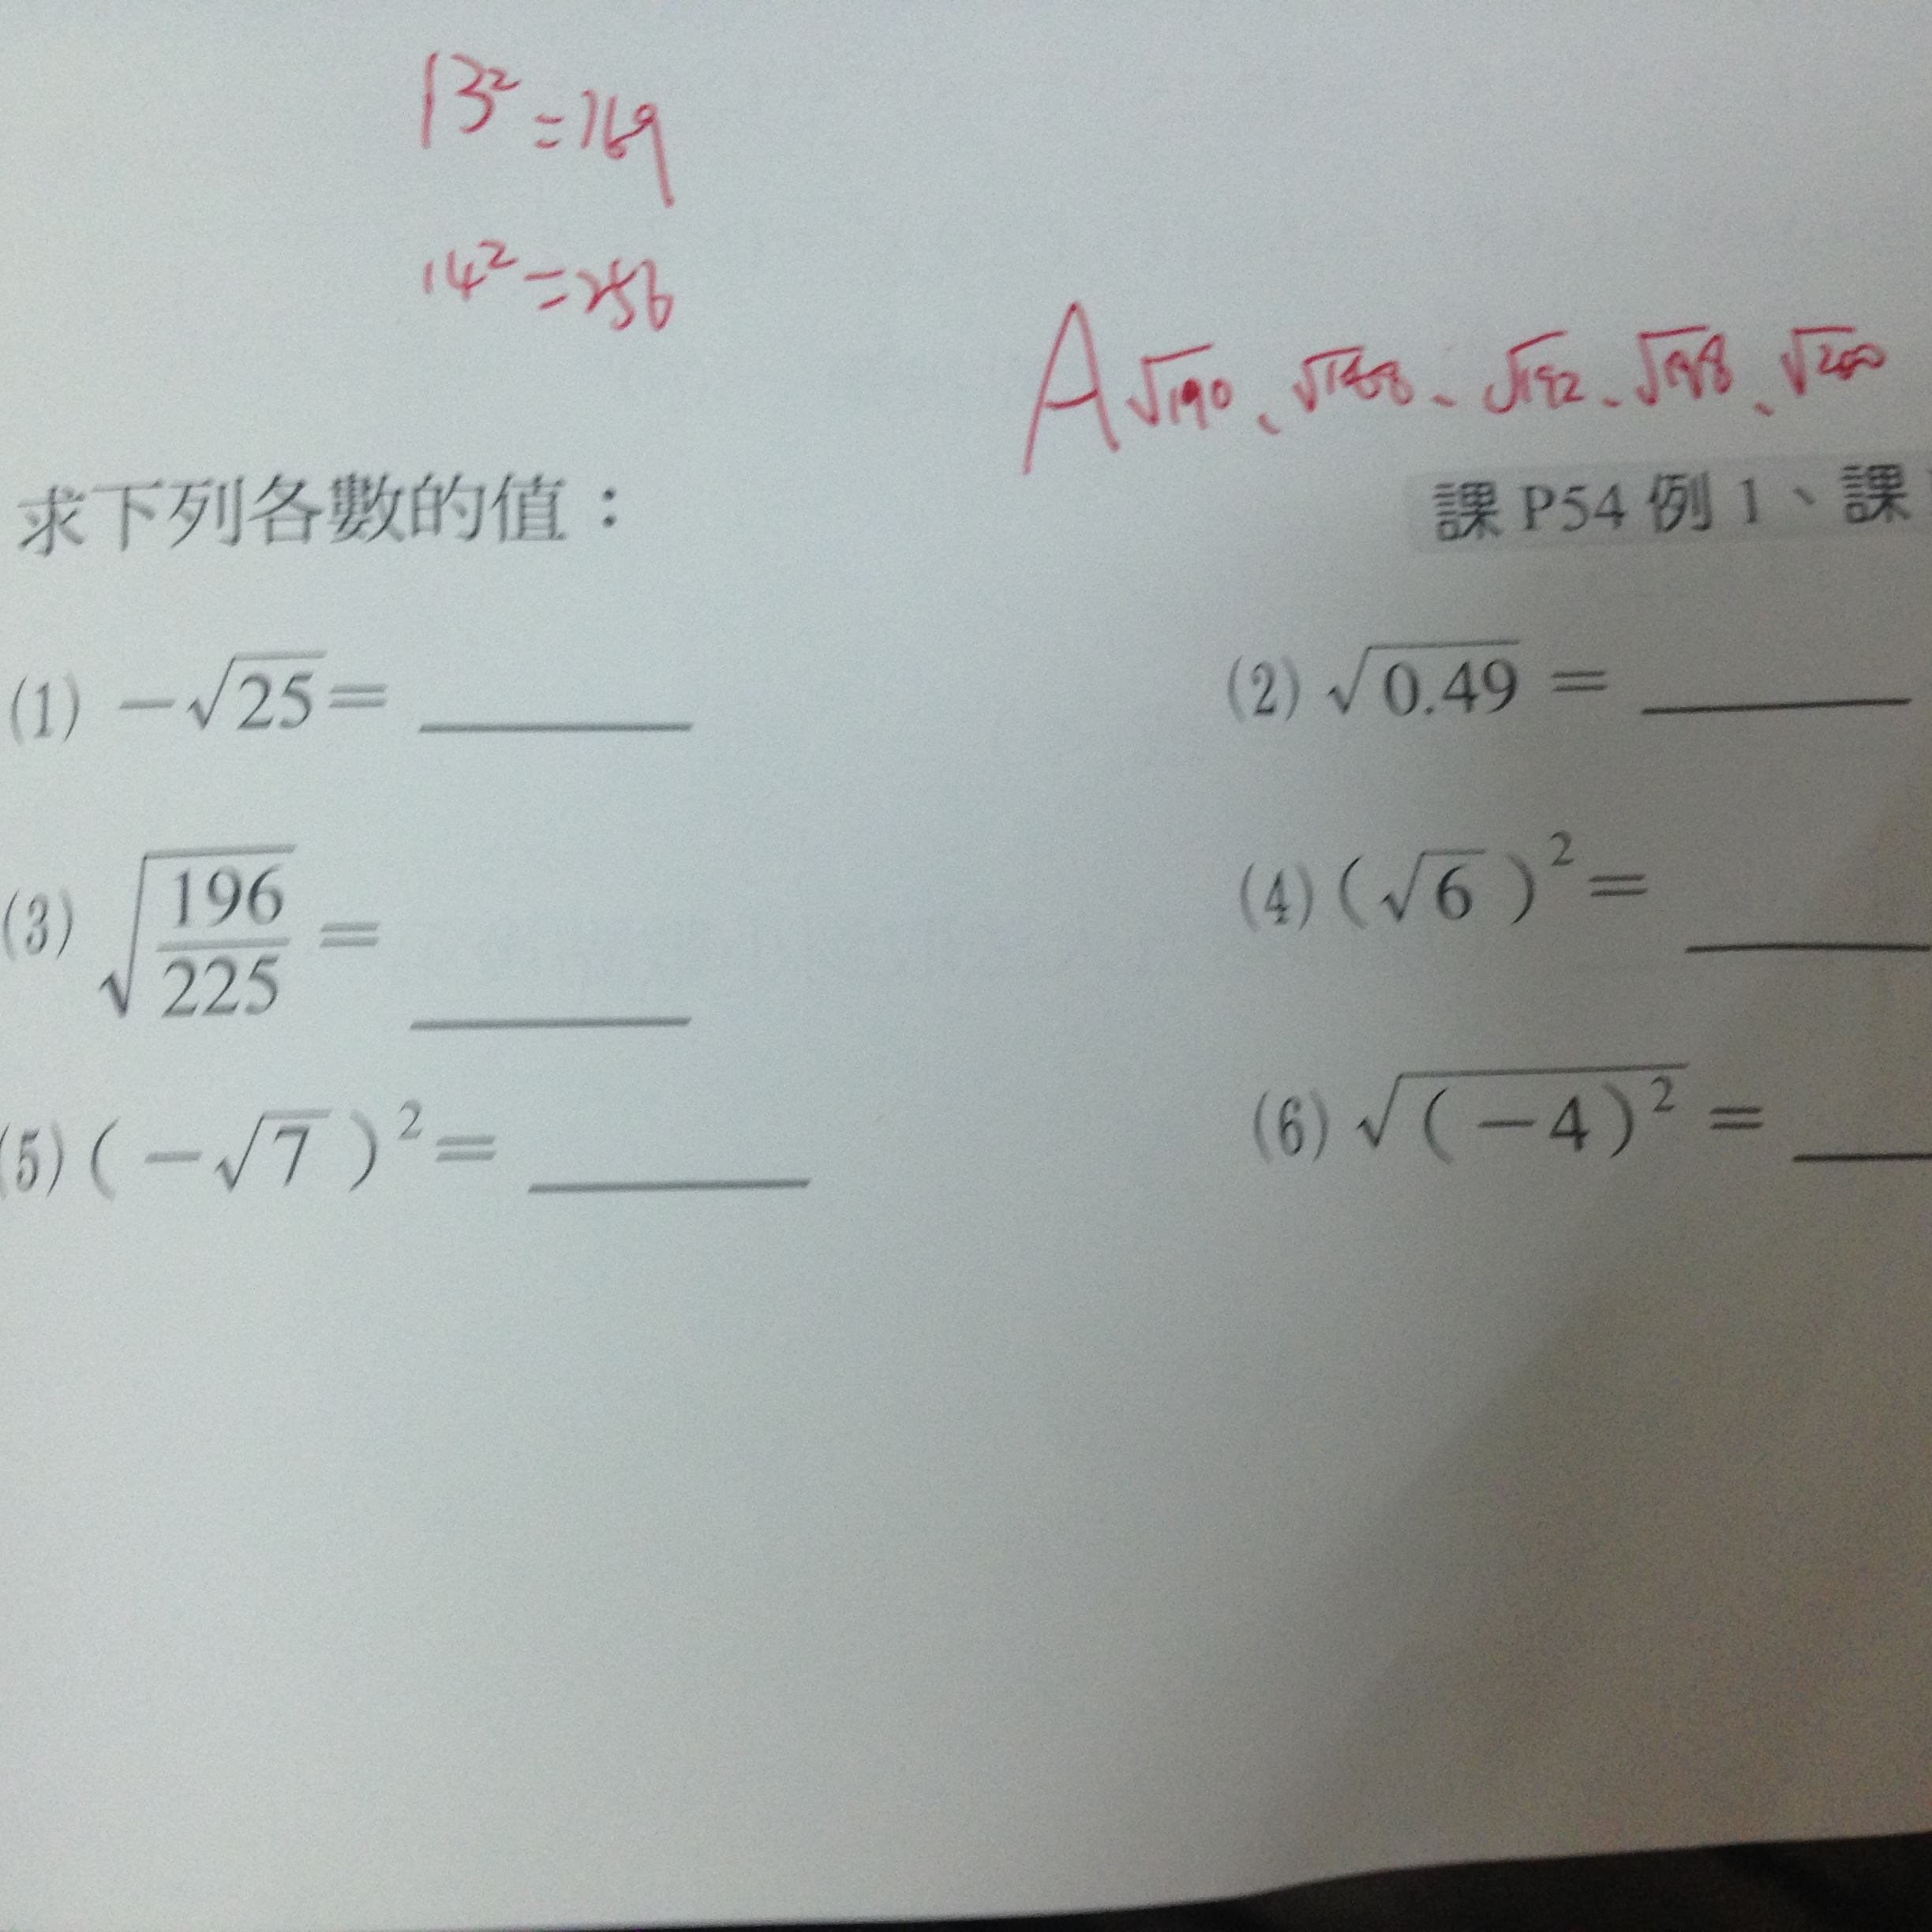 13²=169
14²=256
A √190、√188、√192、√198、√200
求下列各數的值：
課 P54 例 1、課
(1) －√25＝
(2) √0.49 ＝
(3) √(196/225) ＝
(4) (√6)²＝
(5) (－√7)²＝
(6) √(－4)² ＝